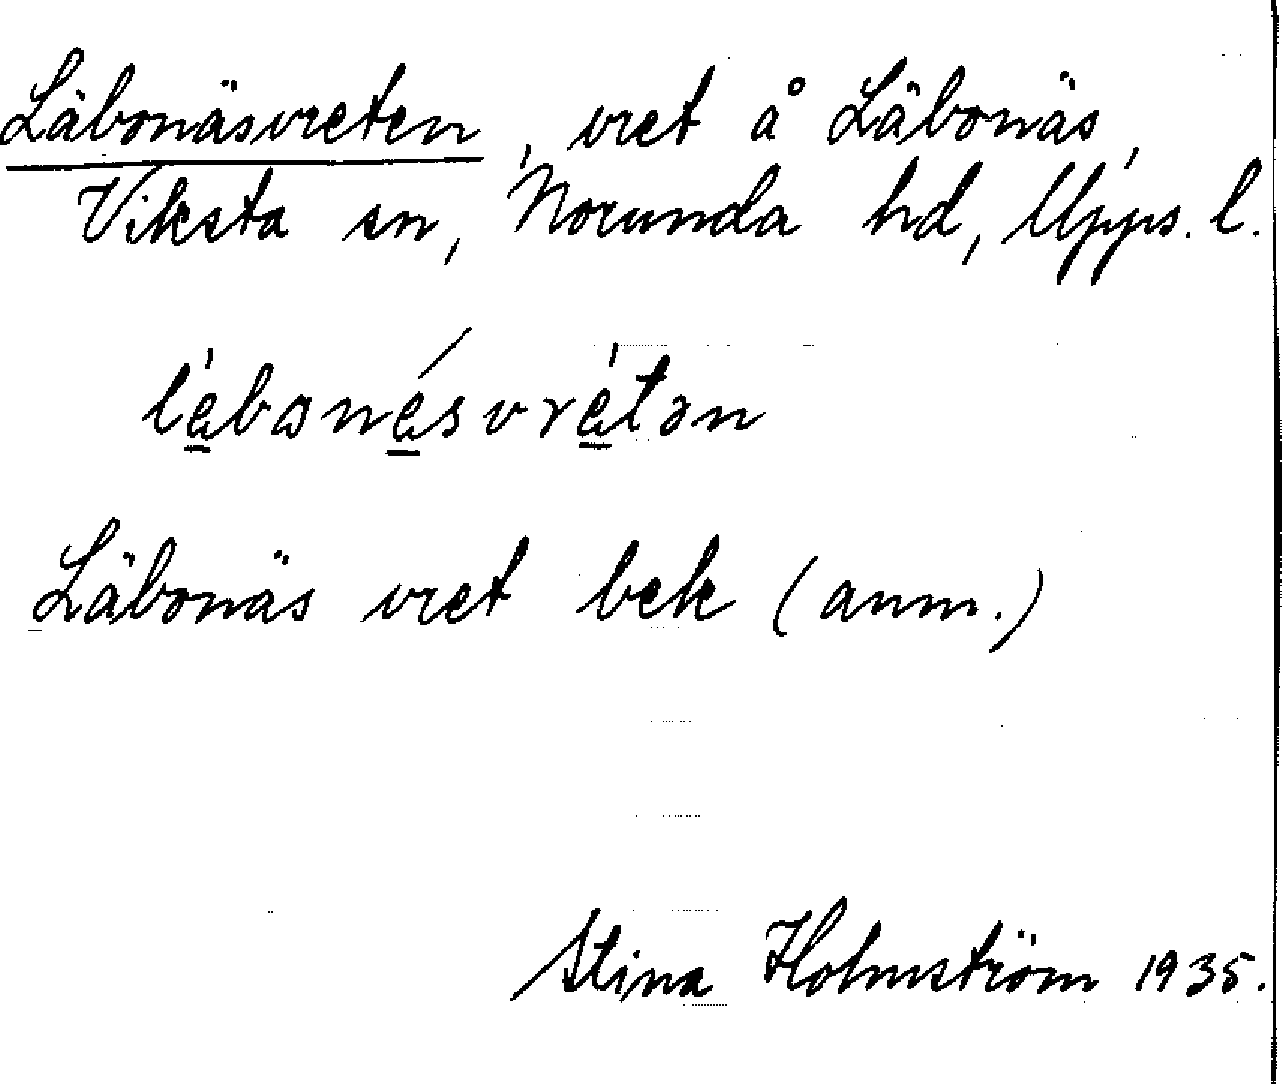 Läbonäsvreten, vret å Läbonäs,
Viksta sn, Norunda hd, Upps. l.
Läbonäs vret bek (anm.)
Stina Holmström 1935.